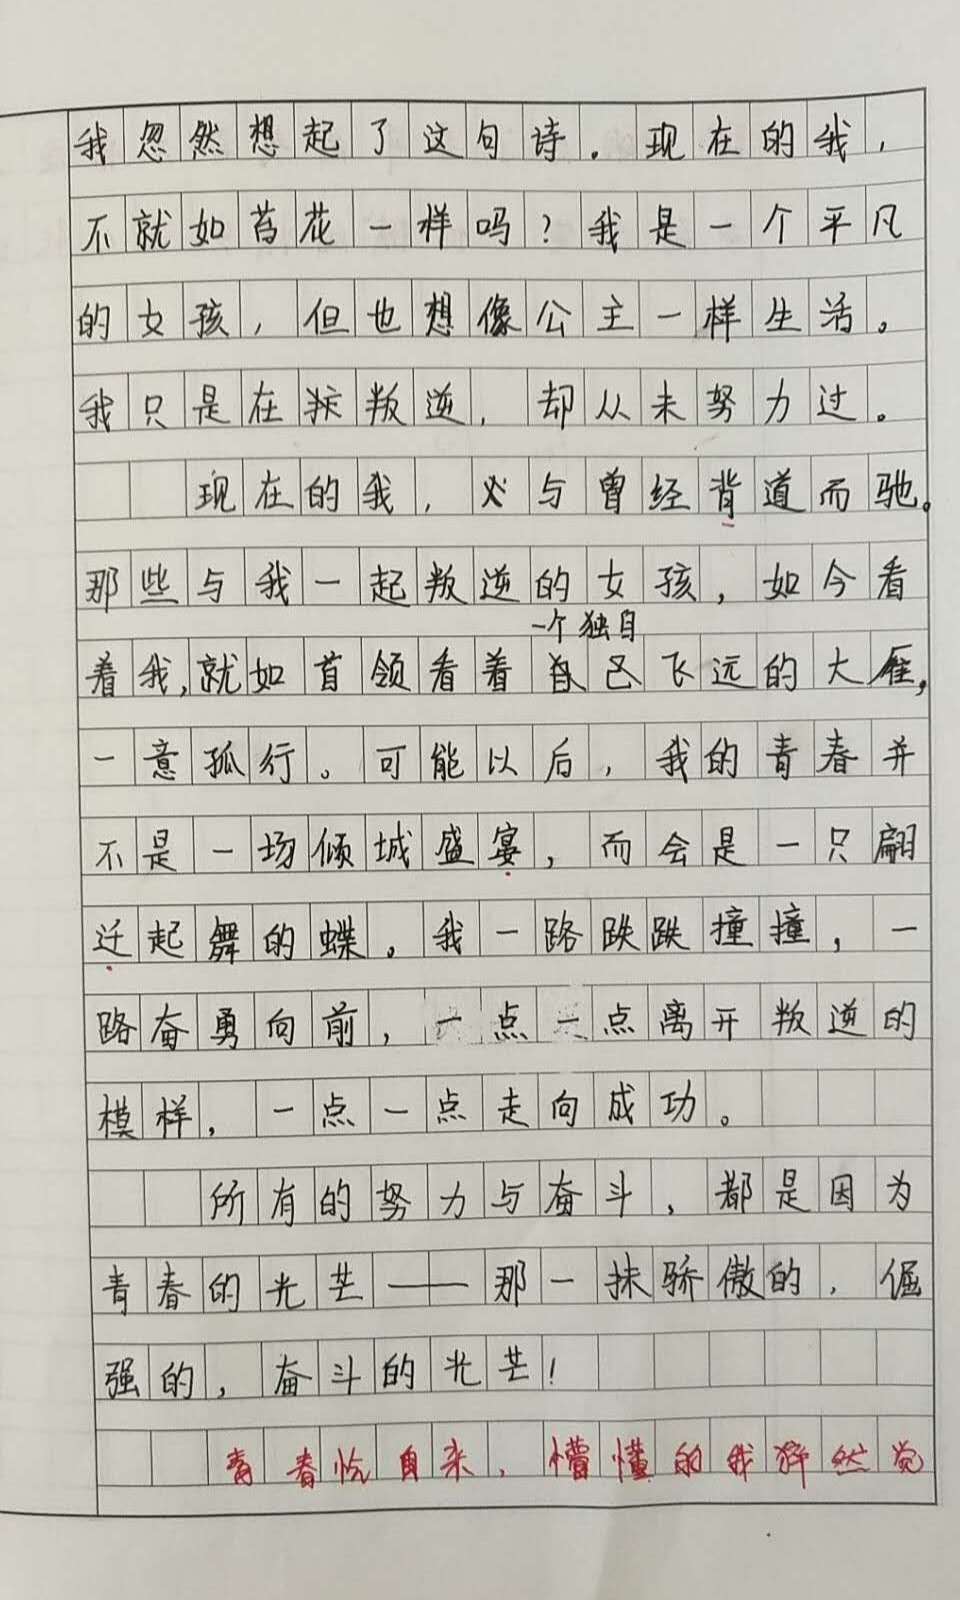 我忽然想起了这句诗。现在的我，
不就如苔花一样吗？我是一个平凡
的女孩，但也想像公主一样生活。
我只是在叛逆，却从未努力过。
现在的我，必与曾经背道而驰。
那些与我一起叛逆的女孩，如今看
一个独自
着我，就如首领看着自己飞远的大雁，
一意孤行。可能以后，我的青春并
不是一场倾城盛宴，而会是一只翩
迁起舞的蝶。我一路跌跌撞撞，一
路奋勇向前，一点一点离开叛逆的
模样，一点一点走向成功。
所有的努力与奋斗，都是因为
青春的光芒——那一抹骄傲的，倔
强的，奋斗的光芒！
青春恰自来，懵懂的我猝然觉